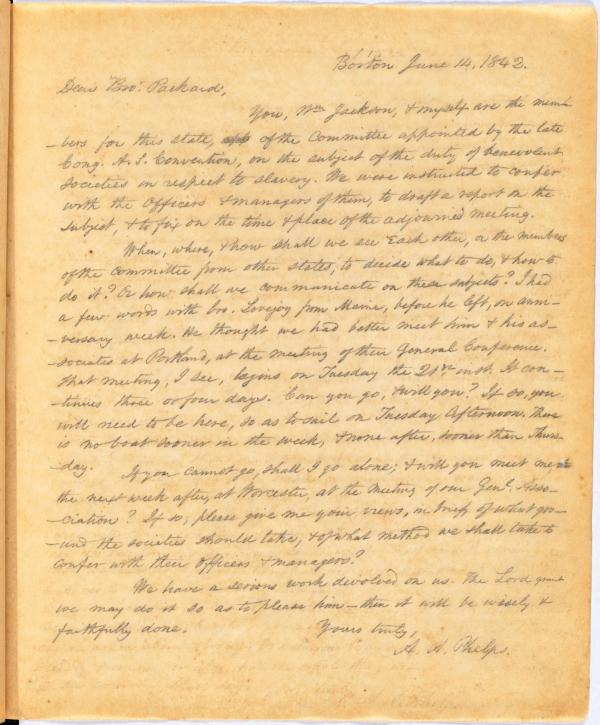 Boston June 14, 1842.
Dear Bro. Packard,
You, Wm Jackson, & myself are the mem-
-bers for this state, of the Committee appointed by the late
Cong. A. S. Convention, on the subject of the duty of benevolent
Societies in respect to slavery. We were instructed to confer
with the Officers & managers of them, to draft a report on the
subject, & to fix on the time & place of the adjourned meeting.
When, where, & how shall we see each other, or the members
of the committee from other states, to decide what to do, & how to
do it? Or how shall we communicate on these subjects? I had
a few words with bro. Lovejoy from Maine, before he left, on anni-
-versary week. We thought we had better meet him & his as-
-sociates at Portland, at the meeting of their General Conference.
That meeting, I see, begins on Tuesday the 21st inst. It con-
-tinues three or four days. Can you go, & will you? If so, you
will need to be here, so as to sail on Tuesday Afternoon. There
is no boat sooner in the week, & none after, sooner than Thurs-
-day.
If you cannot go, shall I go alone; & will you meet me
the next week after, at Worcester, at the meeting of our Genl. Asso-
-ciation? If so, please give me your views, in brief, of what gro-
-und the societies should take, & of what method we shall take to
confer with their officers & managers?
We have a serious work devolved on us. The Lord grant
we may do it so as to please him – then it will be wisely &
faithfully done.
Yours truly,
A. A. Phelps.